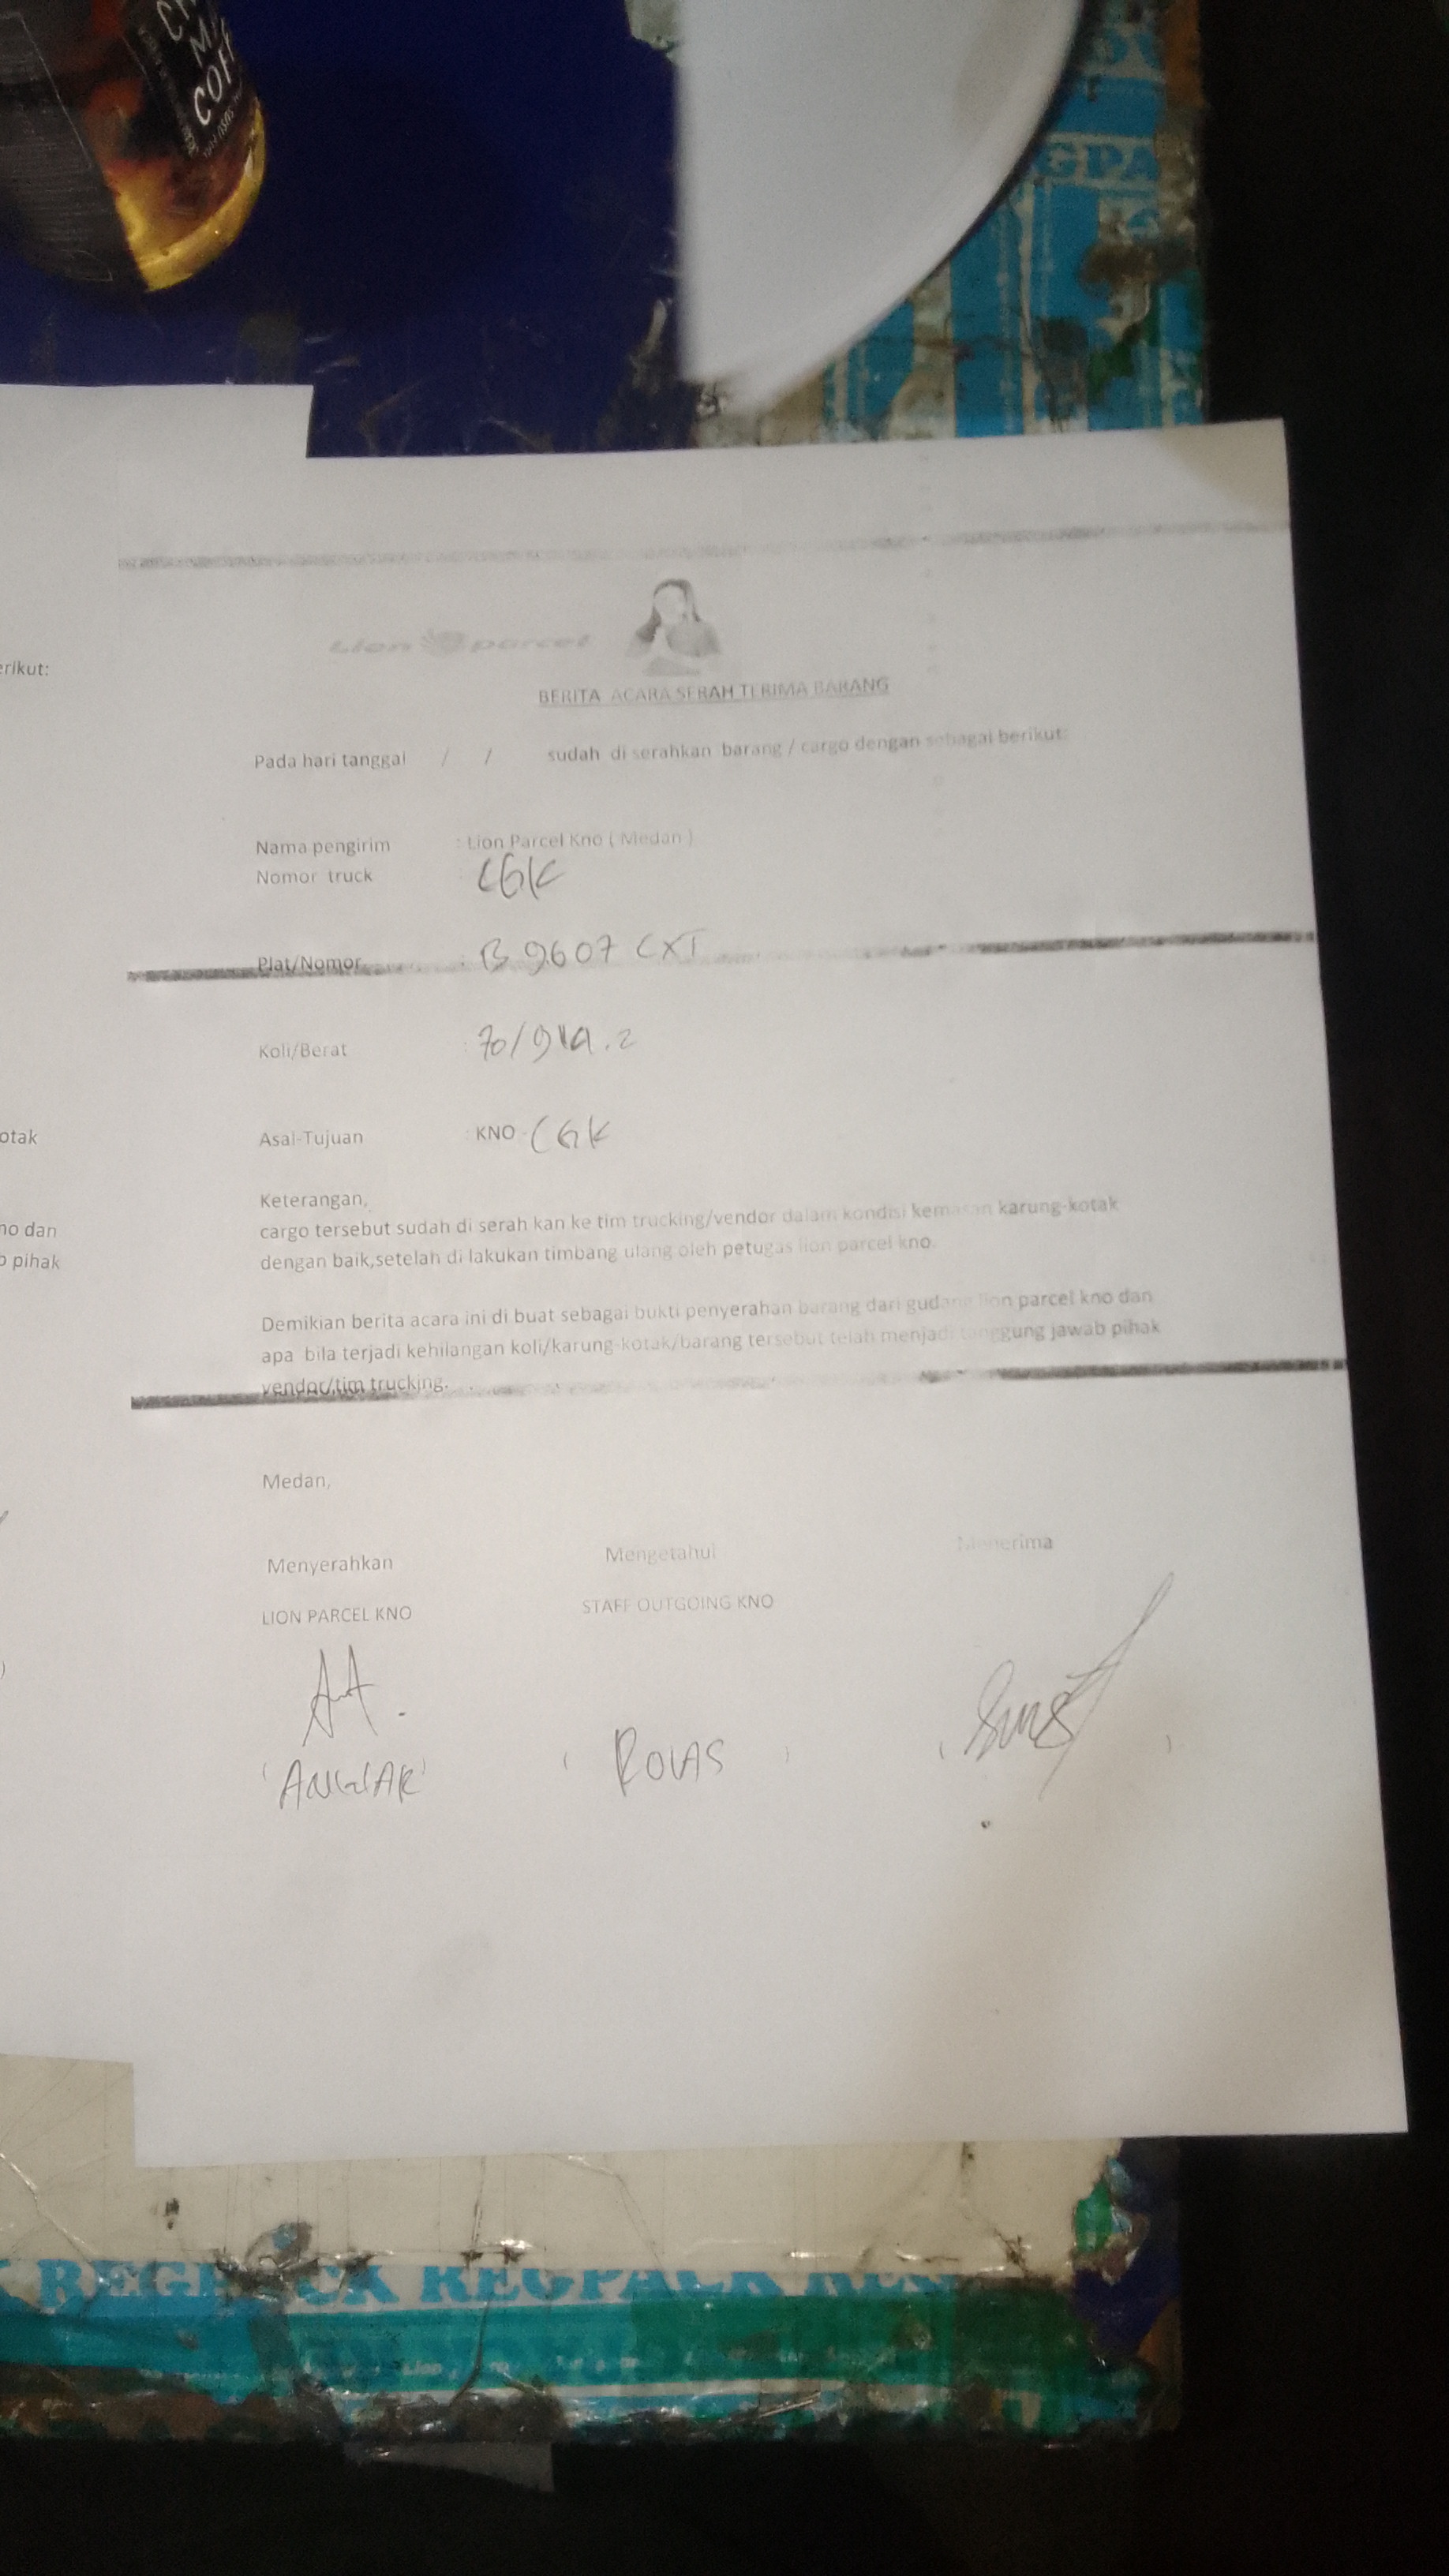 CH
MI
COF
erikut:
otak
no dan
pihak
Lion parcel
BERITA ACARA SERAH TERIMA BARANG
Pada hari tanggal / / sudah di serahkan barang / cargo dengan sebagai berikut:
Nama pengirim : Lion Parcel Kno ( Medan )
Nomor truck : CGK
Plat/Nomor : B 9607 CXT
Koli/Berat : 70/914.2
Asal-Tujuan : KNO - CGK
Keterangan,
cargo tersebut sudah di serah kan ke tim trucking/vendor dalam kondisi kemasan karung-kotak
dengan baik,setelah di lakukan timbang ulang oleh petugas lion parcel kno.
Demikian berita acara ini di buat sebagai bukti penyerahan barang dari gudang lion parcel kno dan
apa bila terjadi kehilangan koli/karung-kotak/barang tersebut telah menjadi tanggung jawab pihak
vendor/tim trucking.
Medan,
Menyerahkan Mengetahui Menerima
LION PARCEL KNO STAFF OUTGOING KNO
(ANWAR) ( )
REGPACK REGPACK REG